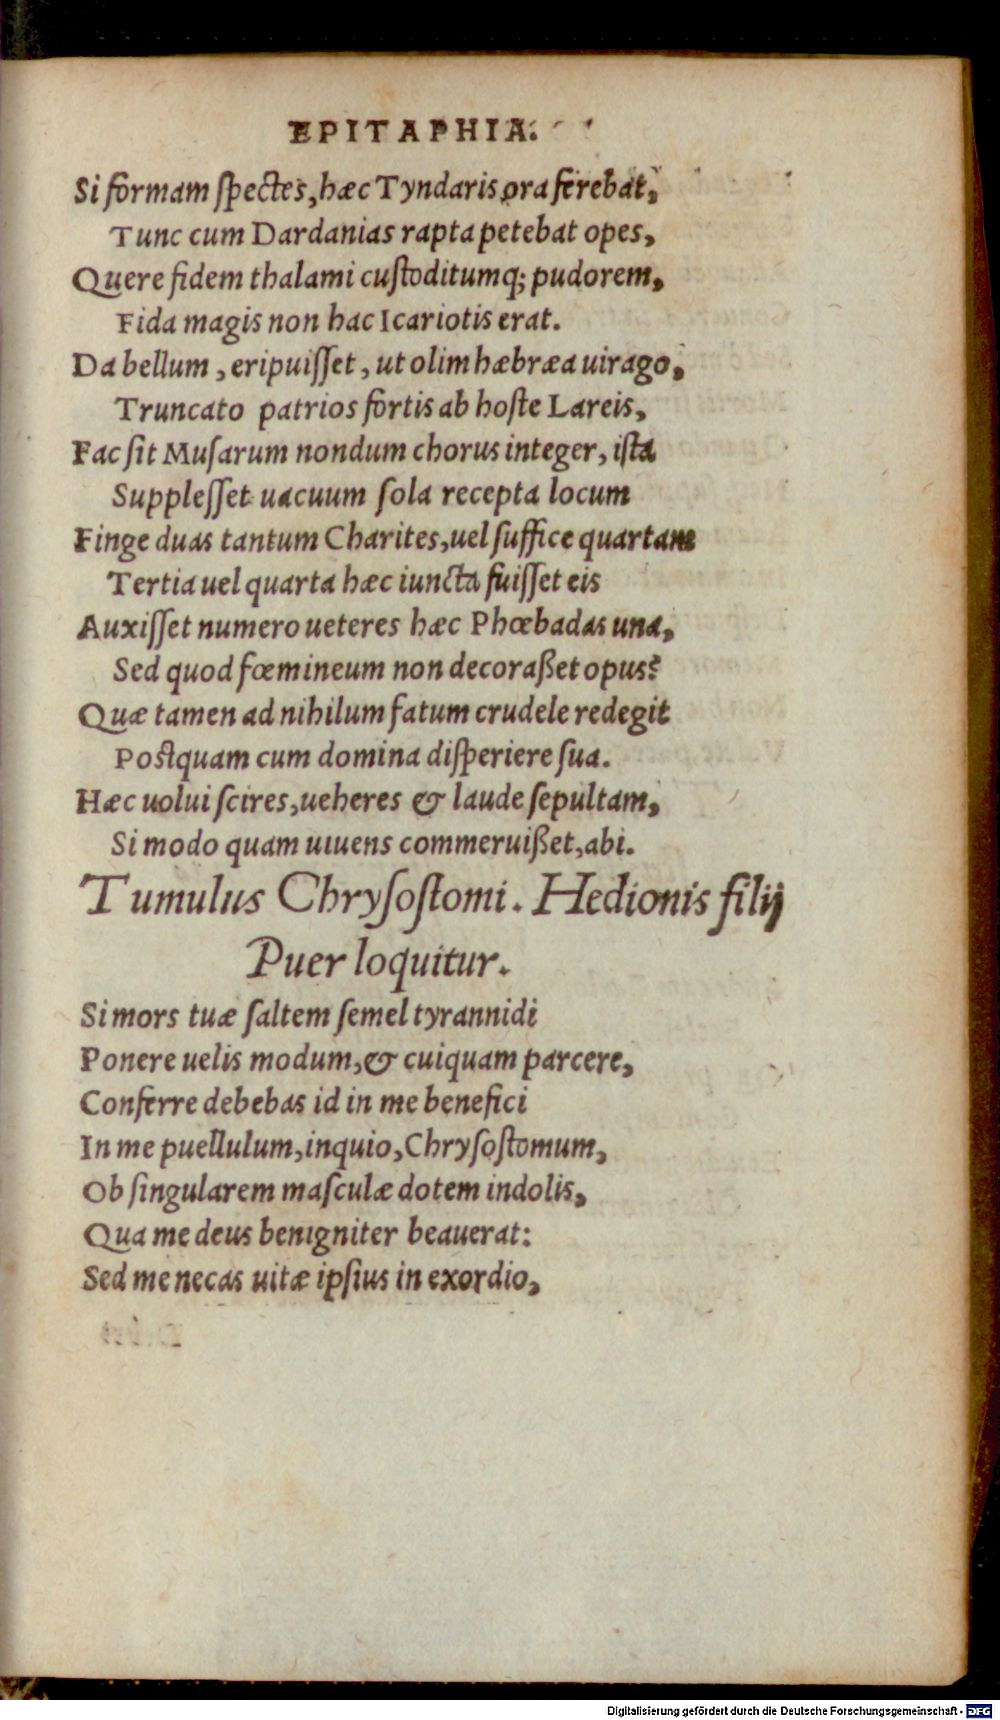 EPITAPHIA.
Si formam spectes, hæc Tyndaris ora ferebat,
Tunc cum Dardanias rapta petebat opes,
Quere fidem thalami custoditumq; pudorem,
Fida magis non hac Icariotis erat.
Da bellum, eripuisset, ut olim hæbræa uirago,
Truncato patrios fortis ab hoste Lareis,
Fac sit Musarum nondum chorus integer, ista
Supplesset uacuum sola recepta locum
Finge duas tantum Charites, uel suffice quartam
Tertia uel quarta hæc iuncta fuisset eis
Auxisset numero ueteres hæc Phœbadas una,
Sed quod fœmineum non decoraßet opus?
Quæ tamen ad nihilum fatum crudele redegit
Postquam cum domina disperiere sua.
Hæc uolui scires, ueheres & laude sepultam,
Si modo quam uiuens commeruißet, abi.
Tumulus Chrysostomi. Hedionis filij
Puer loquitur.
Si mors tuæ saltem semel tyrannidi
Ponere uelis modum, & cuiquam parcere,
Conferre debebas id in me benefici
In me puellulum, inquio, Chrysostomum,
Ob singularem masculæ dotem indolis,
Qua me deus benigniter beauerat:
Sed me necas uitæ ipsius in exordio,
Digitalisierung gefördert durch die Deutsche Forschungsgemeinschaft - DFG